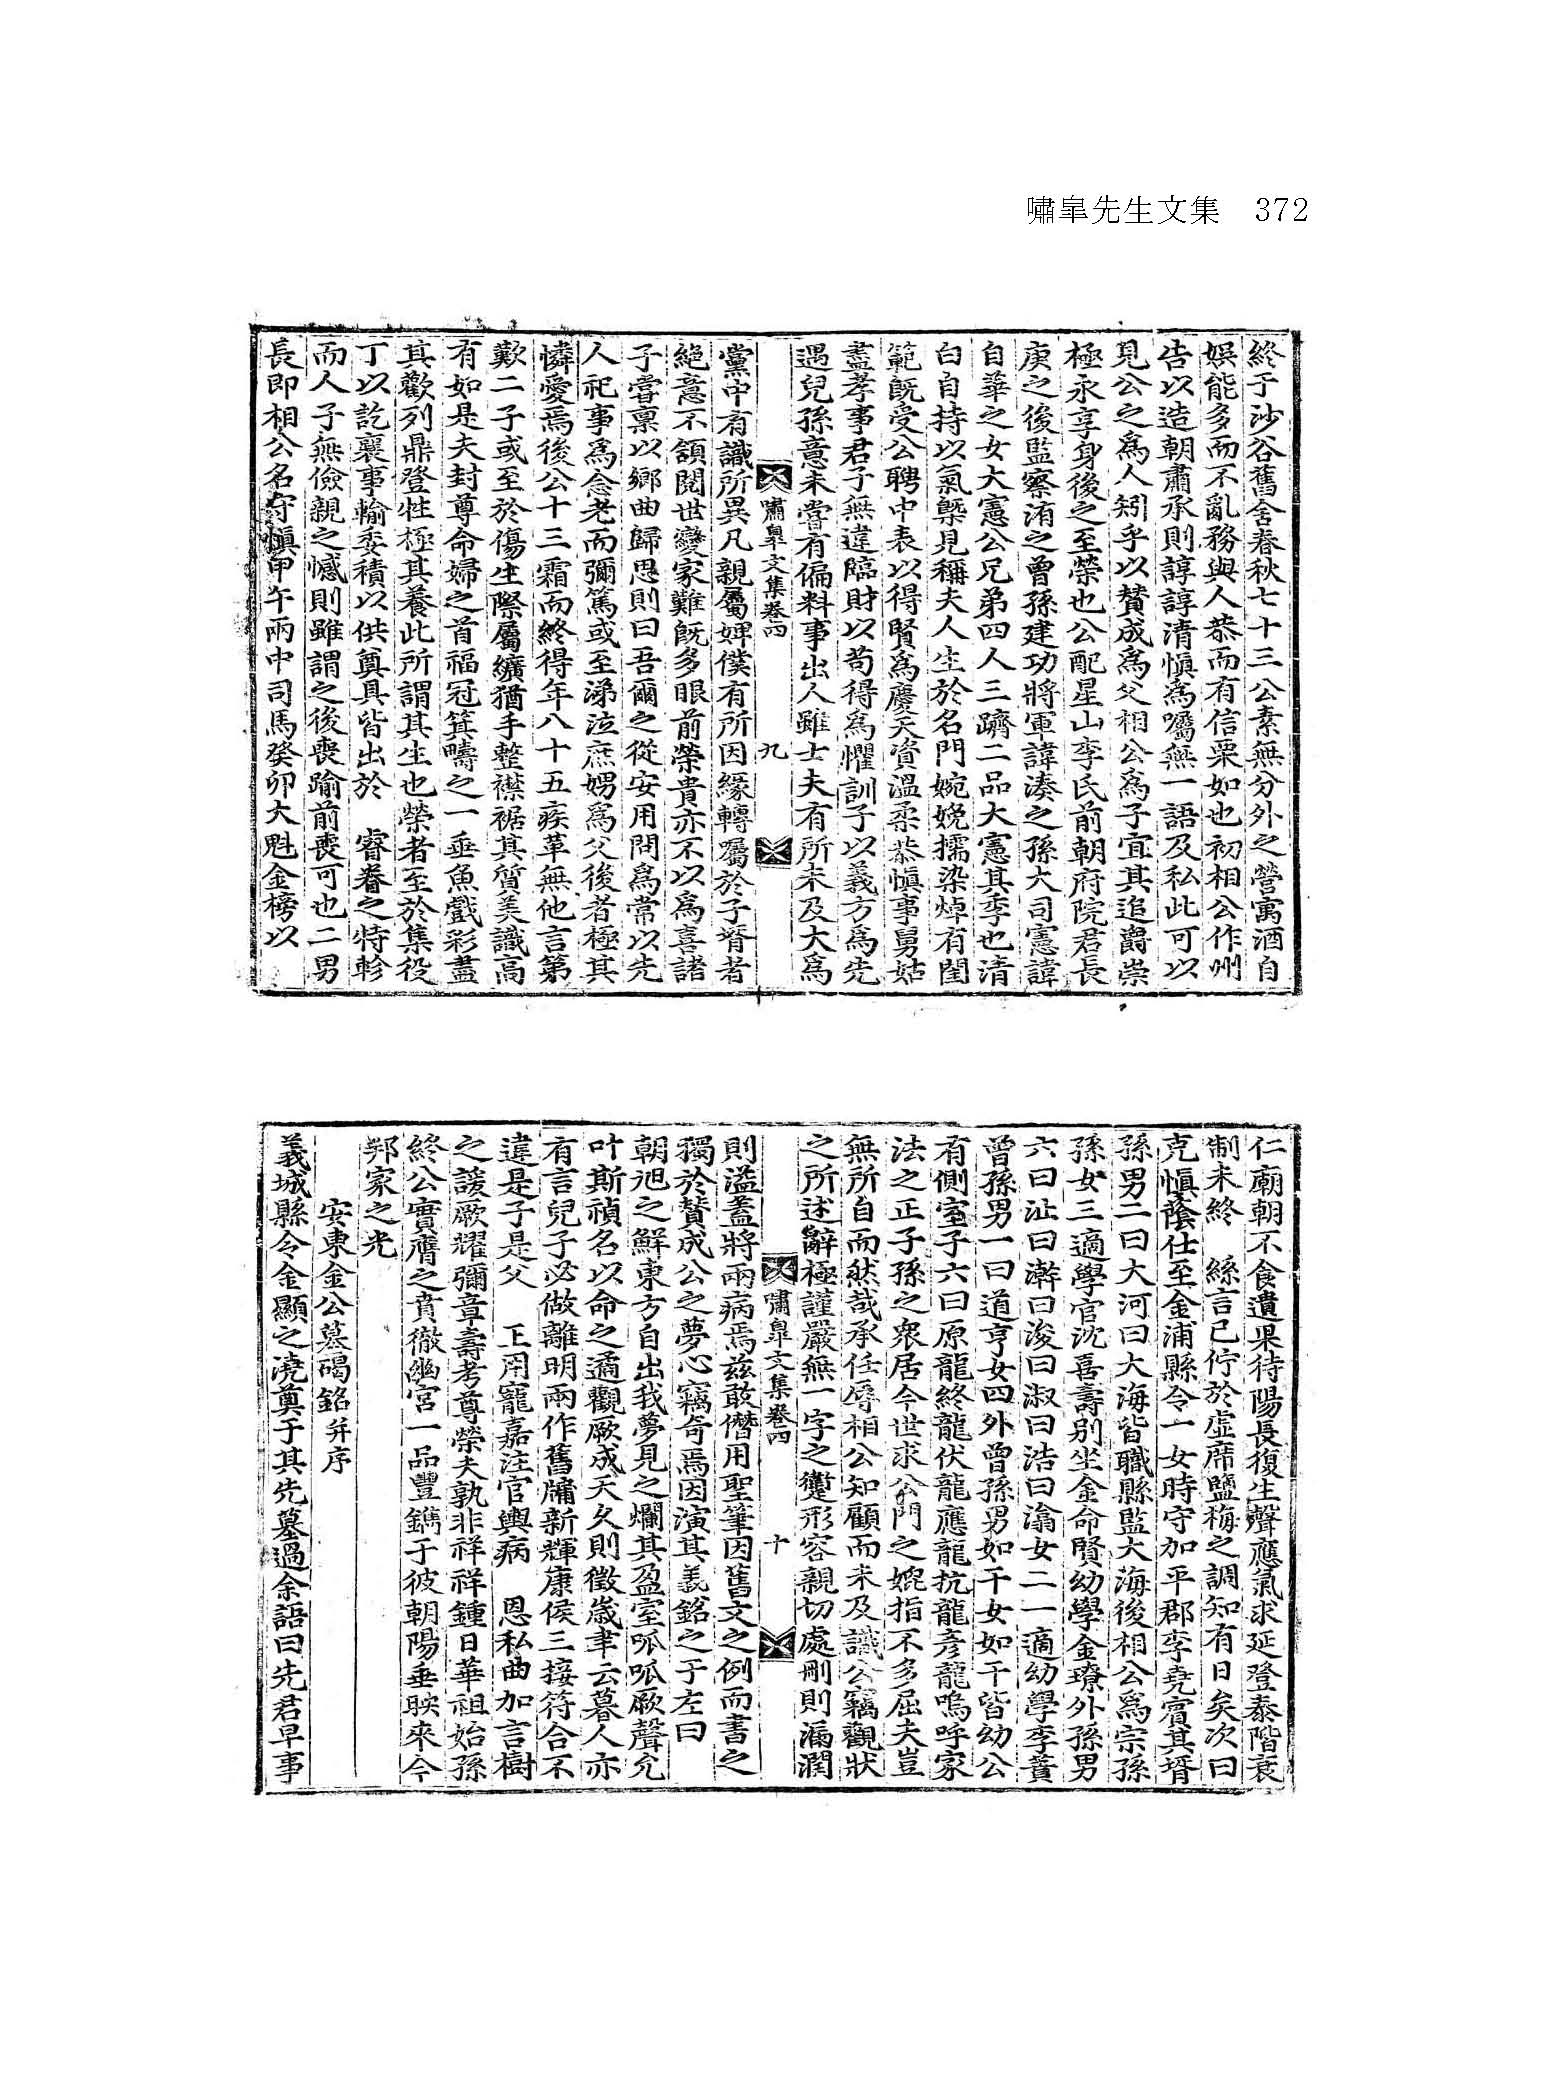 嘯皐先生文集 372
終于沙谷舊舍春秋七十三公素無分外之營寓酒自
娛能多而不亂務與人恭而有信栗如也初相公作州
告以造朝肅承則諄諄清愼爲囑無一語及私此可以
見公之爲人矧乎以賛成爲父相公爲子宜其追爵崇
極永享身後之至榮也公配星山李氏前朝府院君長
庚之後監察洧之曾孫建功將軍諱湊之孫大司憲諱
自華之女大憲公兄弟四人三躋二品大憲其季也清
白自持以氣槩見稱夫人生於名門婉娩擩染焯有閨
範旣受公聘中表以得賢爲慶天資溫柔恭愼事舅姑
盡孝事君子無違臨財以苟得爲懼訓子以義方爲先
遇兒孫意未嘗有偏料事出人雖士夫有所未及大爲
嘯皐文集卷四 九
黨中有識所異凡親屬婢僕有所因緣轉囑於子壻者
絕意不頷閱世變家難旣多眼前榮貴亦不以爲喜諸
子嘗禀以鄉曲歸思則曰吾爾之從安用問爲常以先
人祀事爲念老而彌篤或至涕泣庶娚爲父後者極其
憐愛焉後公十三霜而終得年八十五疾革無他言第
歎二子或至於傷生際屬纊猶手整襟裾其質美識高
有如是夫封尊命婦之首福冠箕疇之一垂魚戲彩盡
其歡列鼎登牲極其養此所謂其生也榮者至於集役
丁以訖襄事輸委積以供奠具皆出於 睿眷之特軫
而人子無儉親之憾則雖謂之後喪踰前喪可也二男
長即相公名守愼甲午兩中司馬癸卯大魁金榜以
仁廟朝不食遺果待陽長復生聲應氣求延登泰階衰
制未終 絲言已佇於虛席鹽梅之調知有日矣次曰
克愼蔭仕至金浦縣令一女時守加平郡李堯賓其壻
孫男二曰大河曰大海皆職縣監大海後相公爲宗孫
孫女三適學官沈喜壽别坐金命賢幼學金瞭外孫男
六曰沚曰澣曰浚曰淑曰浩曰潝女二一適幼學李蕡
曾孫男一曰道亨女四外曾孫男如干女如干皆幼公
有側室子六曰原龍終龍伏龍應龍抗龍彦龍嗚呼家
法之正子孫之衆居今世求公門之媲指不多屈夫豈
無所自而然哉承任辱相公知顧而未及識公竊觀狀
之所述辭極謹嚴無一字之䜌形容親切處刪則漏潤
嘯皐文集卷四 十
則溢盖將兩病焉玆敢僭用聖筆因舊文之例而書之
獨於賛成公之夢心竊奇焉因演其義銘之于左曰
朝旭之鮮東方自出我夢見之爛其盈室呱呱厥聲允
叶斯禎名以命之遹觀厥成天久則徵歲聿云暮人亦
有言兒子必做離明兩作舊牖新輝康侯三接符合不
違是子是父 王用寵嘉注官輿病 恩私曲加言樹
之諼厥耀彌章壽考尊榮夫孰非祥祥鍾日華祖始孫
終公實膺之賁徹幽宮一品豐鐫于彼朝陽垂映來今
邦家之光
安東金公墓碣銘并序
義城縣令金顯之澆奠于其先墓過余語曰先君早事